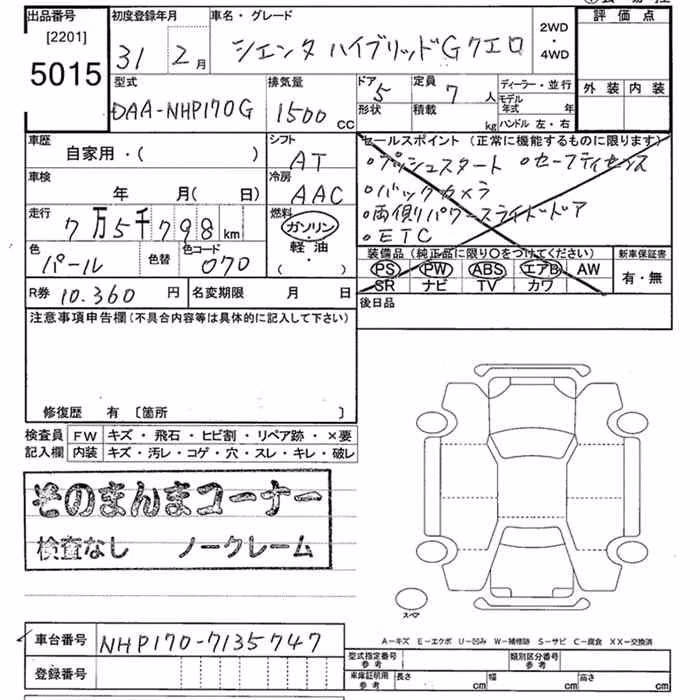 出品番号
[2201]
5015
初度登録年月
31 2月
車名・グレード
シエンタ ハイブリッドG クエロ
2WD
・
4WD
評価点
外装 内装
型式
DAA-NHP170G
排気量
1500 CC
ドア 5
形状
定員 7 人
積載 kg
ディーラー・並行
モデル年式 年
ハンドル 左・右
車歴
自家用・( )
シフト
AT
車検
年 月( 日)
冷房
AAC
走行
7万5千798km
燃料
ガソリン
軽・油
( ・ )
色
パール
色替
色コード
070
R券 10.360 円
名変期限 月 日
セールスポイント (正常に機能するものに限ります)
・プッシュスタート ・セーフティセンス
・バックカメラ
・両側パワースライドドア
・ETC
装備品 (純正品に限り○をつけてください)
PS PW ABS エアB AW
SR ナビ TV カワ
新車保証書
有・無
後日品
注意事項申告欄(不具合内容等は具体的に記入して下さい)
修復歴 有 〔箇所 〕
検査員 FW キズ・飛石・ヒビ割・リペア跡・×要
記入欄 内装 キズ・汚レ・コゲ・穴・スレ・キレ・破レ
そのまんまコーナー
検査なし ノークレーム
スペア
A－キズ E－エクボ U－凹み W－補修跡 S－サビ C－腐食 XX－交換済
車台番号 NHP170-7135747
登録番号
型式指定番号
参考
類別区分番号
参考
車庫証明用
参考
長さ cm 幅 cm 高さ cm